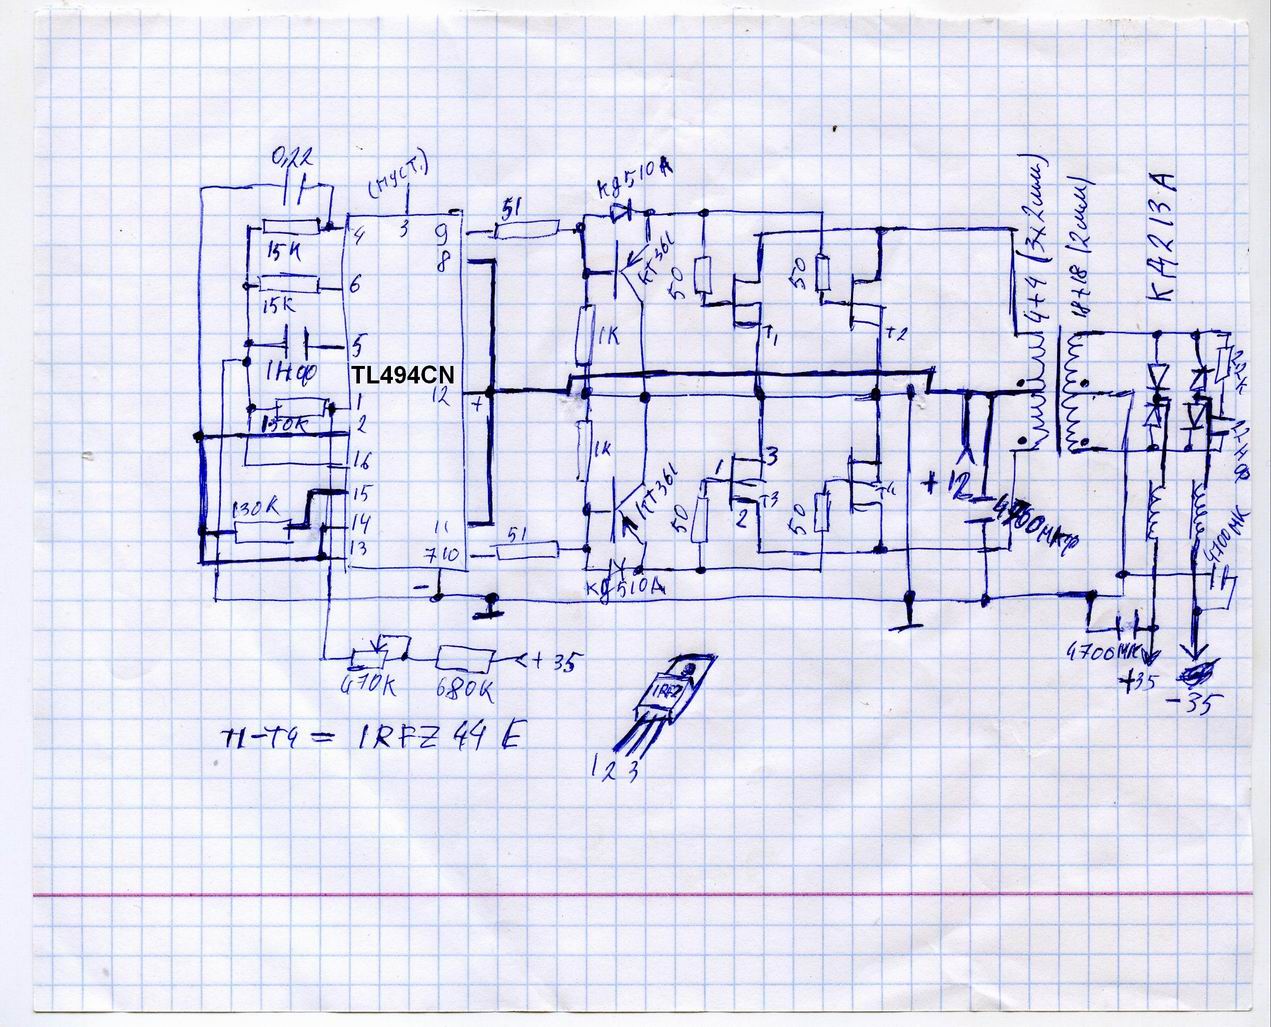 0,22
(пуст.)
51
КД510А
4+4 (3x2мм)
18+18 (2мм)
КД213А
4
3
9
15К
8
КТ361
50
50
6
15К
5
1К
Т1
Т2
1Нф
TL494CN
12
+
1
150К
2
1К
КТ361
1
3
+12
16
15
Т3
Т4
130К
14
50
2
50
4700мкф
4700МК
13
11
7
10
51
-
КД510А
4700МК
+35
-35
470К
680К
+35
IRFZ
Т1-Т4 = IRFZ 44 E
1 2 3